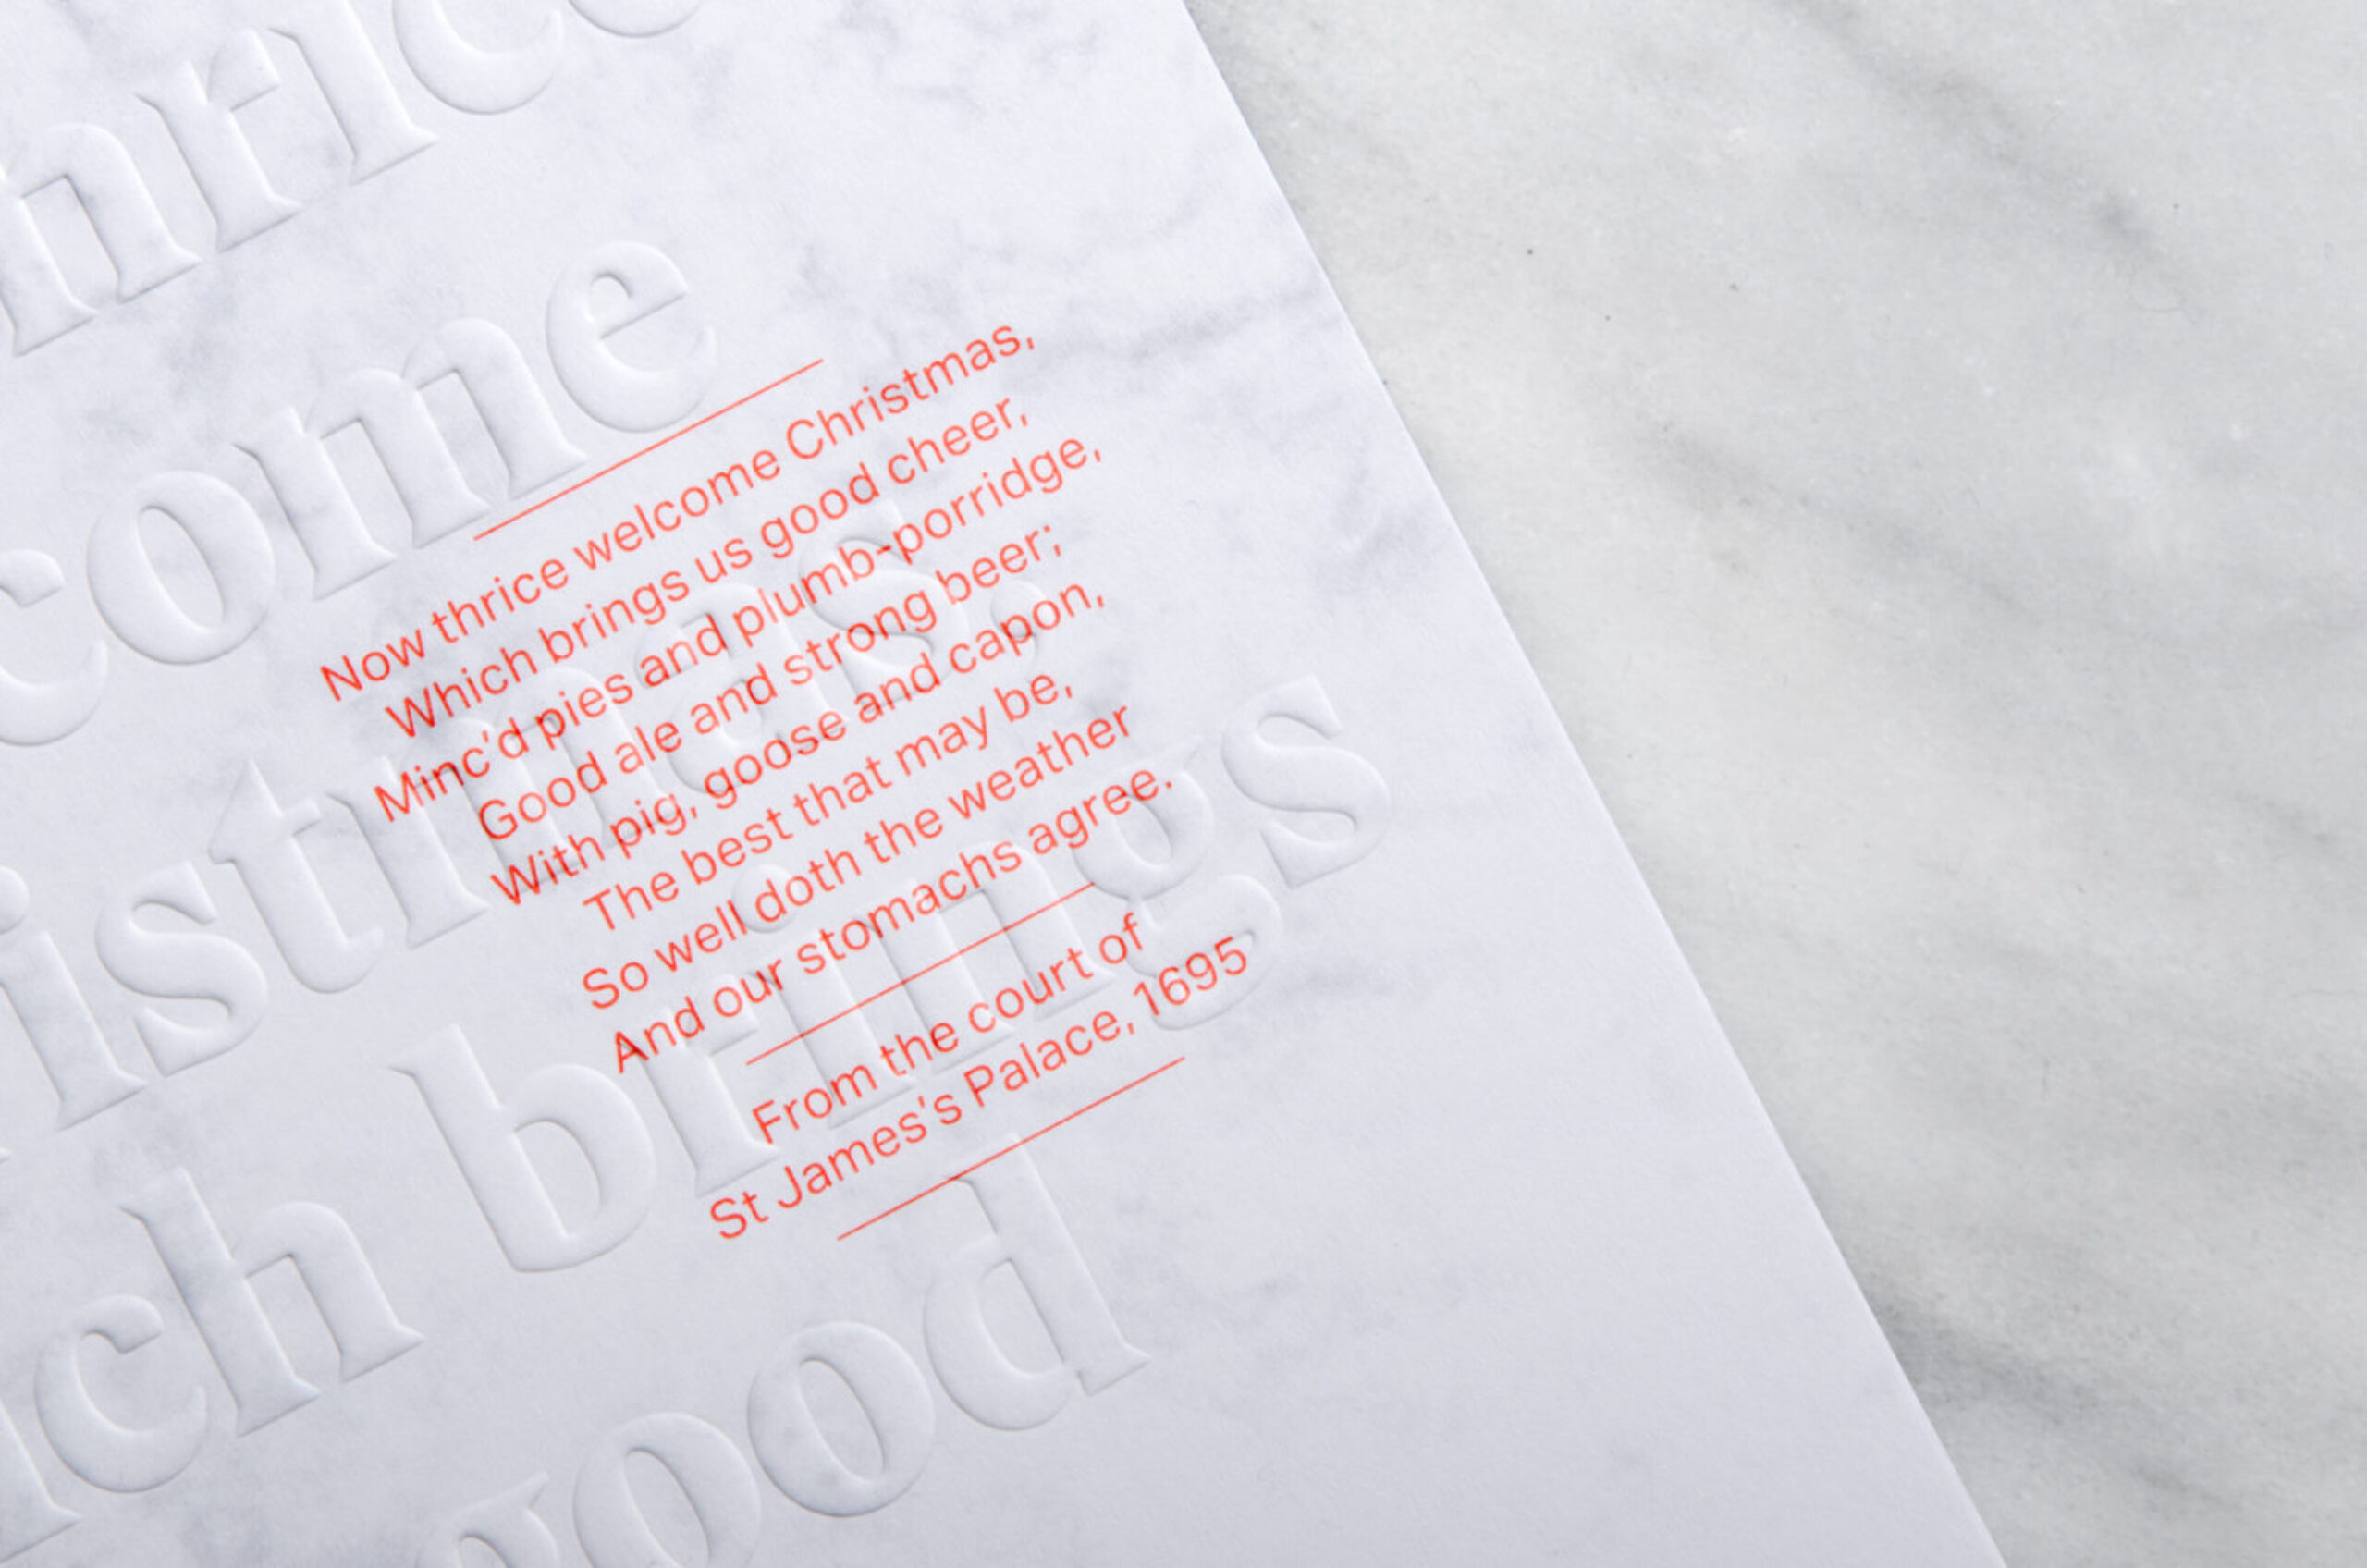 hrice
come
istmas,
ich brings
good
Now thrice welcome Christmas,
Which brings us good cheer,
Minc'd pies and plumb-porridge,
Good ale and strong beer;
With pig, goose and capon,
The best that may be,
So well doth the weather
And our stomachs agree.
From the court of
St James's Palace, 1695